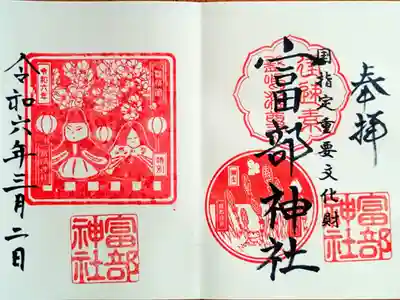 奉拝
国指定重要文化財
富部神社
富部神社
令和六年
特別
富部神社
令和六年三月二日